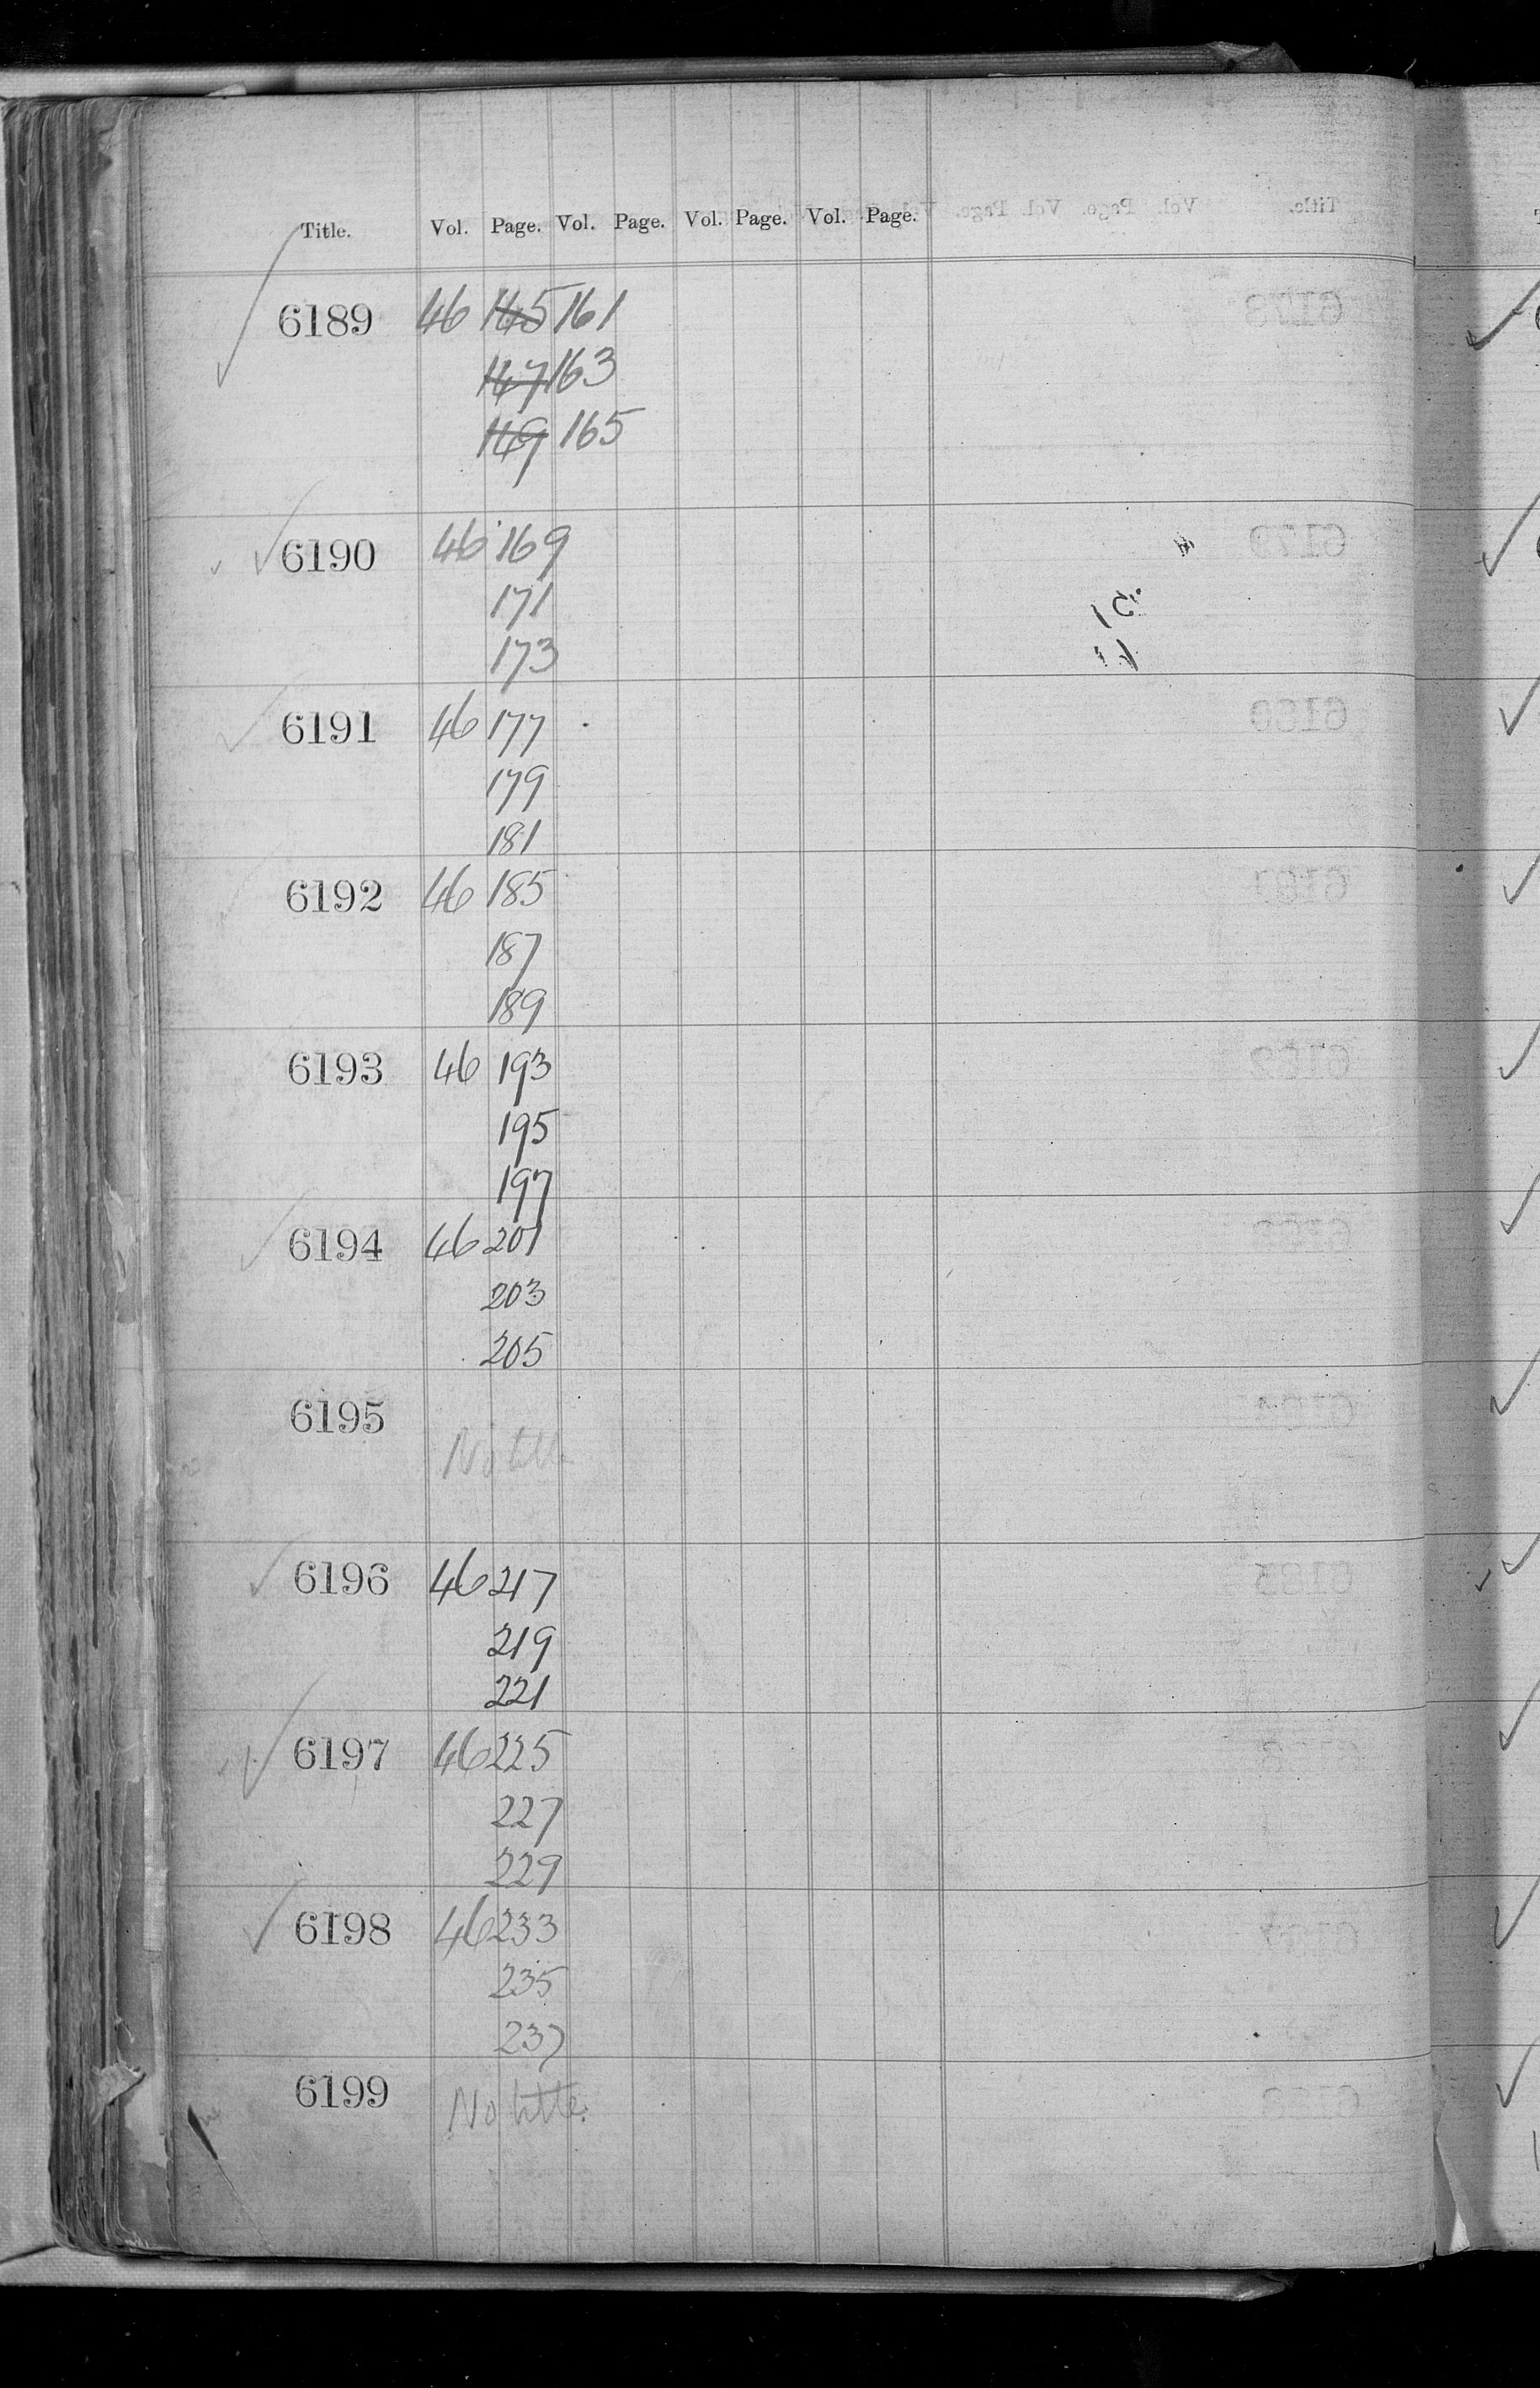 Title. Vol. Page. Vol. Page. Vol. Page. Vol. Page.
6189 46 145 161
147 163
149 165
6190 46 169
171
173
6191 46 177
179
181
6192 46 185
187
189
6193 46 193
195
197
6194 46 201
203
205
6195
No title
6196 46 217
219
221
6197 46 225
227
229
6198 46 233
235
237
6199 No title